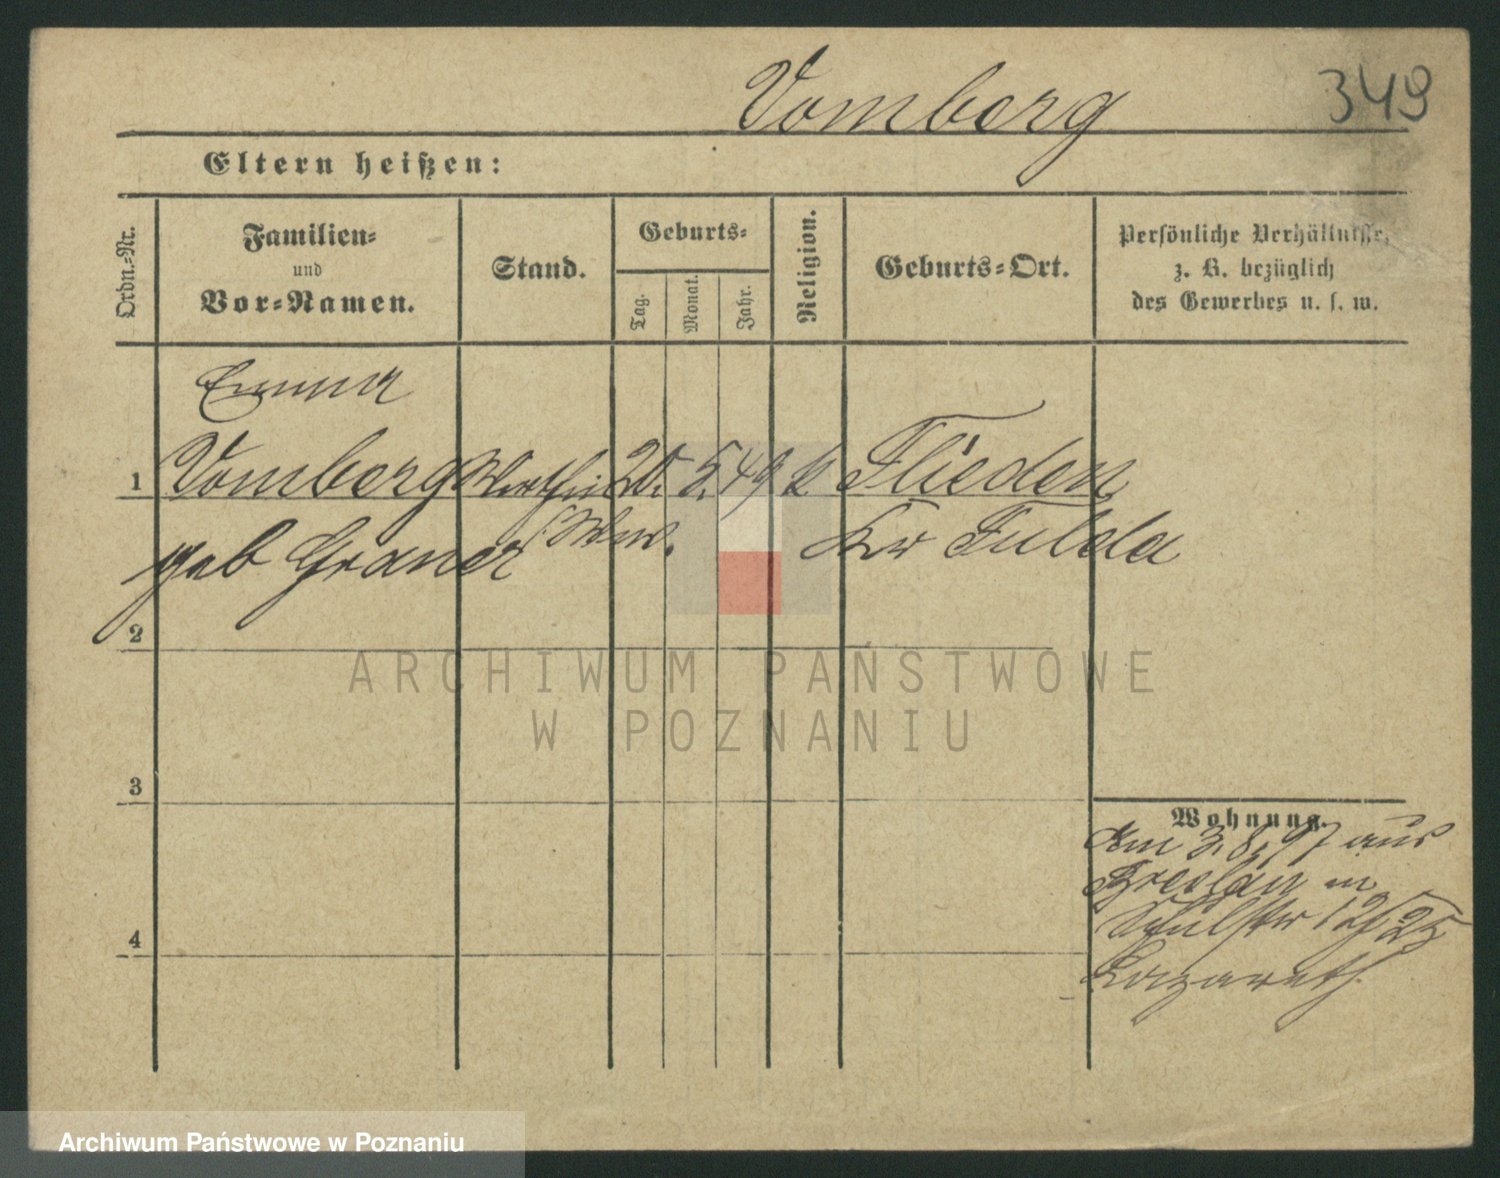 Vomberg
349
Eltern heißen:
Ordn.-Nr.
Familien-
und
Vor-Namen.
Stand.
Geburts-
Tag.
Monat.
Jahr.
Religion.
Geburts-Ort.
Persönliche Verhältnisse,
z. B. bezüglich
des Gewerbes u. s. w.
Emma
1 Vomberg Wirthin 20. 5. 49 k. Flieden
geb Wwe. Kr Fulda
2
3
4
Wohnung.
Am 3.8.97 aus
Breslau in
Schulstr 12/25
Lazareth
ARCHIWUM PAŃSTWOWE
W POZNANIU
Archiwum Państwowe w Poznaniu